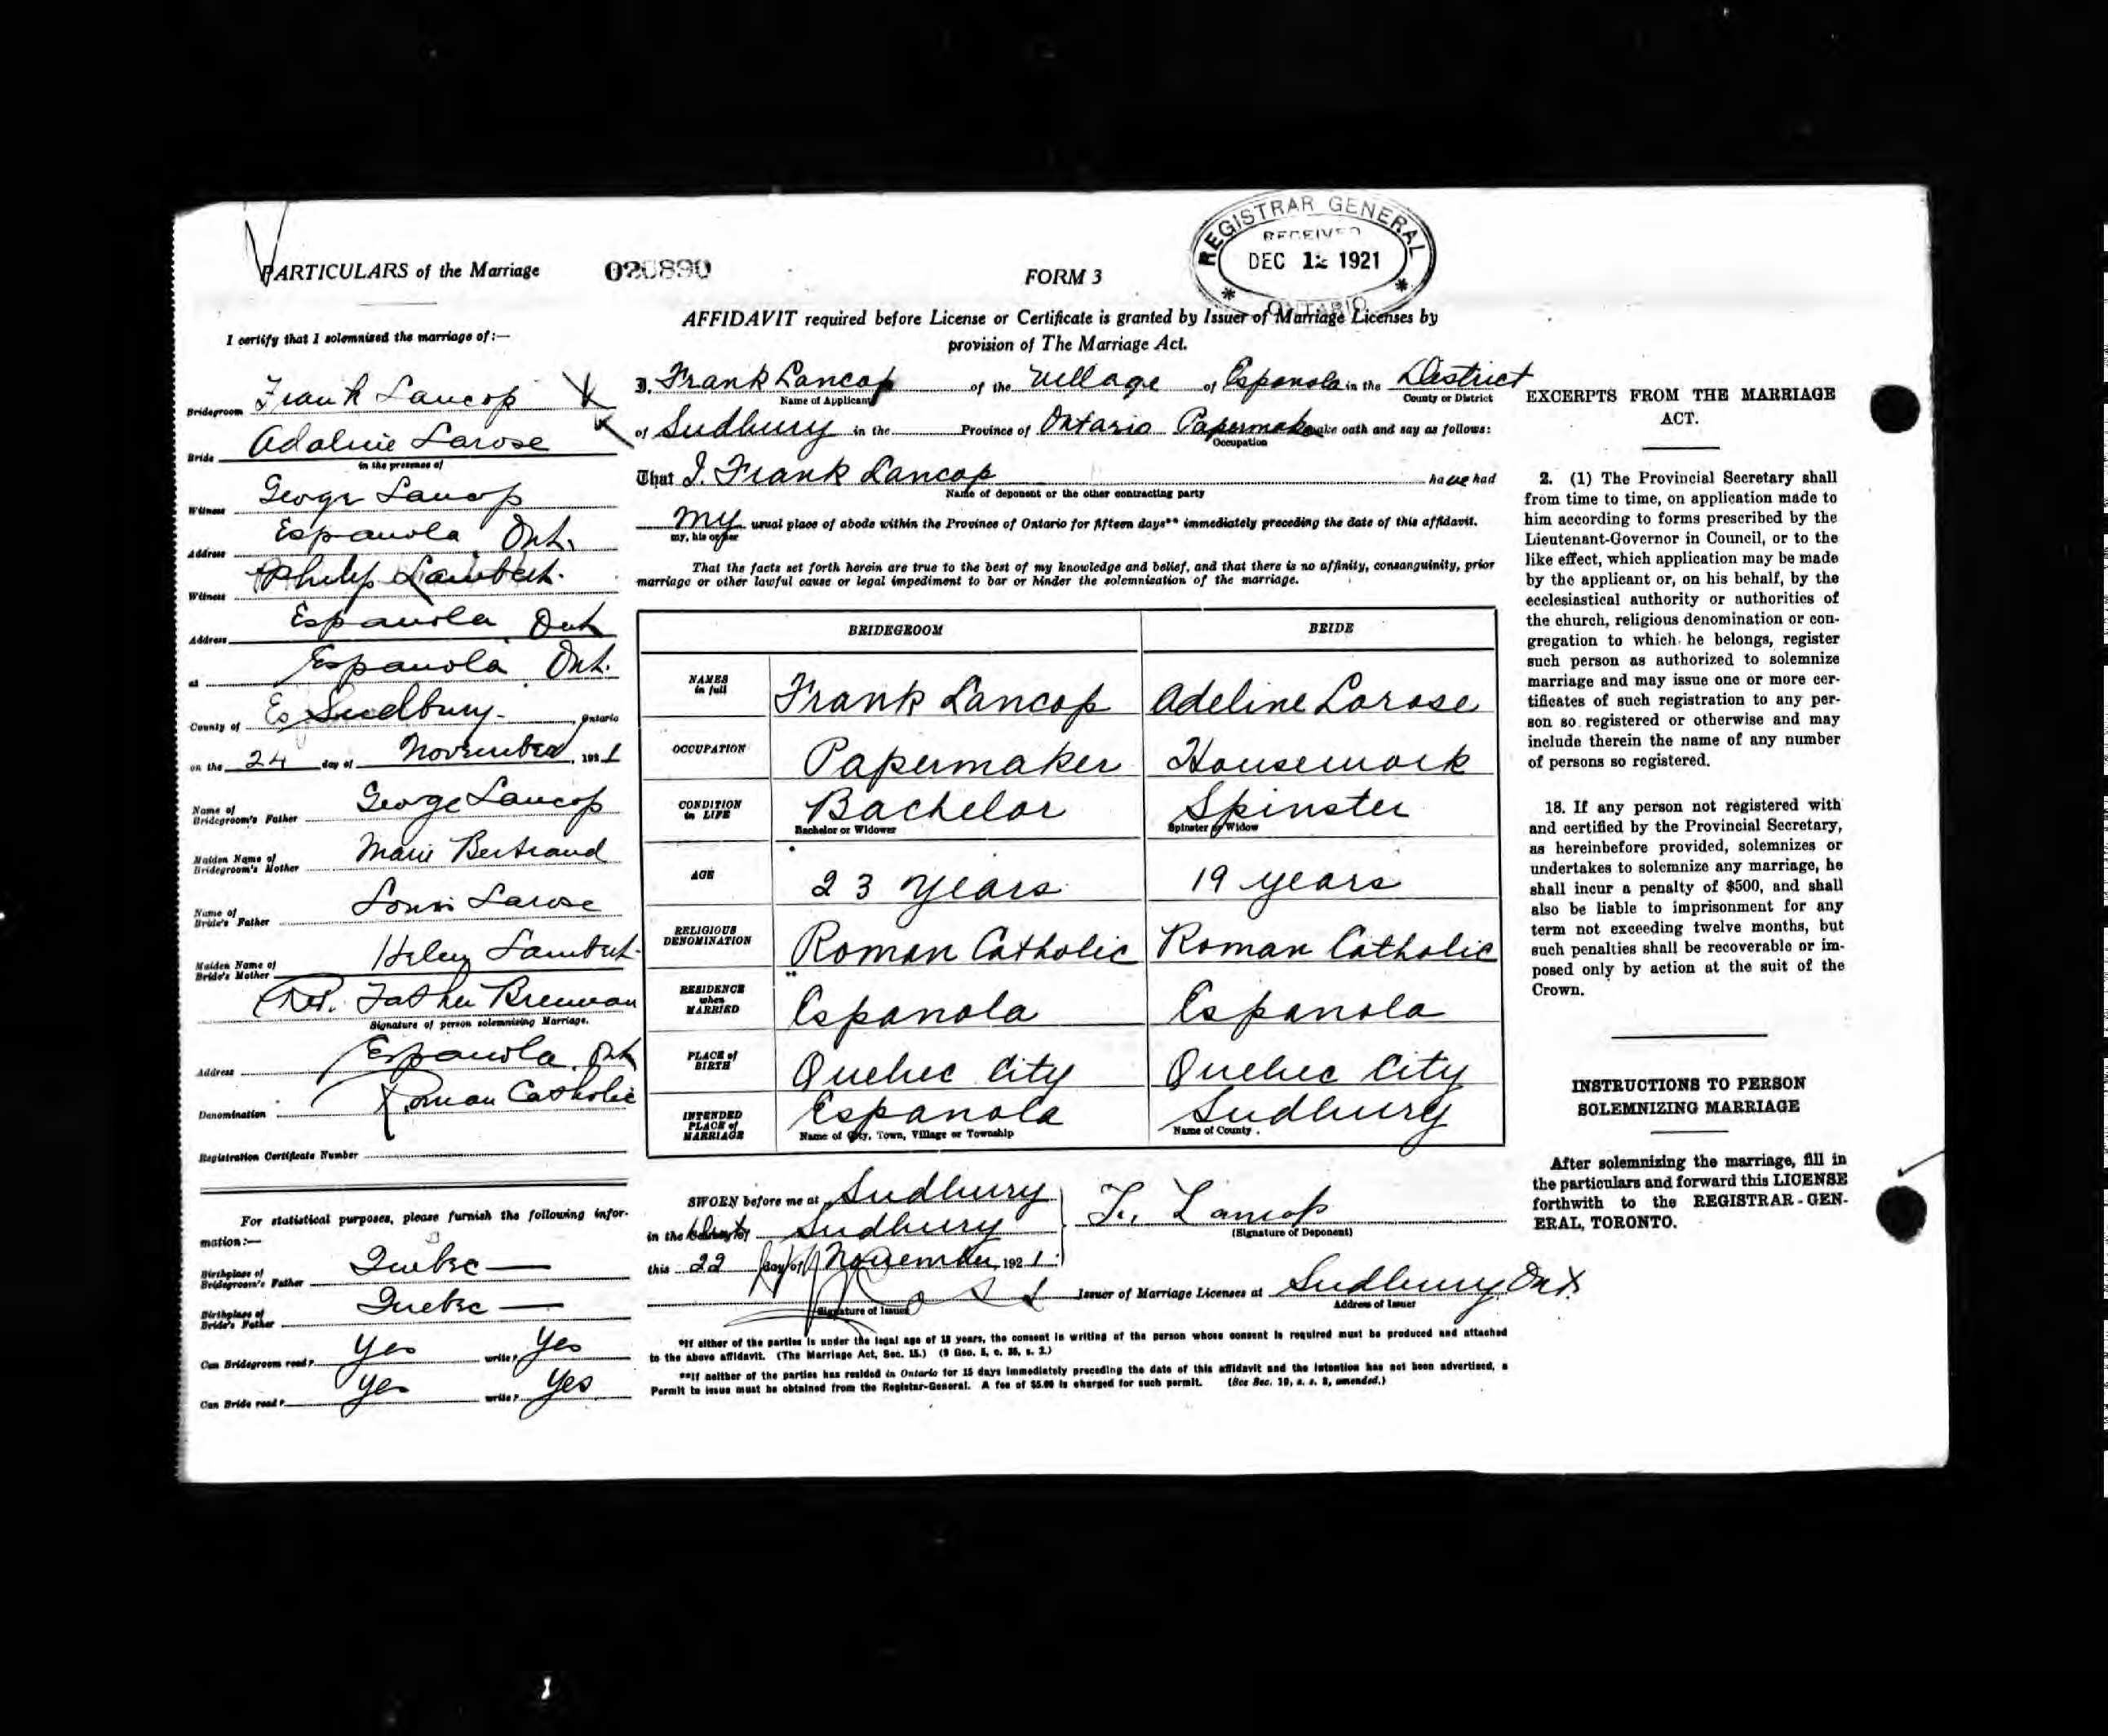 PARTICULARS of the Marriage
I certify that I solemnized the marriage of:—
Bridegroom Frank Lancop
Bride Adaline Larose
in the presence of
Witness George Lancop
Address Espanola Ont.
Witness Philip Lambert.
Address Espanola Ont
at Espanola Ont.
County of Es Sudbury , Ontario
on the 24 day of November, 1921
Name of Bridegroom's Father George Lancop
Maiden Name of Bridegroom's Mother Marie Bertrand
Name of Bride's Father Louis Larose
Maiden Name of Bride's Mother Helen Lambert
Rev. Father Brennan
Signature of person solemnizing Marriage.
Address Espanola Ont
Denomination Roman Catholic
Registration Certificate Number
For statistical purposes, please furnish the following infor-
mation:—
Birthplace of Bridegroom's Father Quebec —
Birthplace of Bride's Father Quebec —
Can Bridegroom read? Yes write? Yes
Can Bride read? Yes write? Yes
FORM 3
REGISTRAR GENERAL
RECEIVED
DEC 12 1921
ONTARIO
AFFIDAVIT required before License or Certificate is granted by Issuer of Marriage Licenses by
provision of The Marriage Act.
I, Frank Lancop of the Village of Espanola in the District
Name of Applicant County or District
of Sudbury in the Province of Ontario Papermaker make oath and say as follows:
Occupation
That I. Frank Lancop have had
Name of deponent or the other contracting party
My usual place of abode within the Province of Ontario for fifteen days** immediately preceding the date of this affidavit.
my, his or her
That the facts set forth herein are true to the best of my knowledge and belief, and that there is no affinity, consanguinity, prior
marriage or other lawful cause or legal impediment to bar or hinder the solemnization of the marriage.
BRIDEGROOM BRIDE
NAMES in full Frank Lancop Adeline Larose
OCCUPATION Papermaker Housework
CONDITION in LIFE Bachelor Spinster
Bachelor or Widower Spinster or Widow
AGE 23 years 19 years
RELIGIOUS DENOMINATION Roman Catholic Roman Catholic
RESIDENCE when MARRIED Espanola Espanola
PLACE of BIRTH Quebec City Quebec City
INTENDED PLACE of MARRIAGE Espanola Sudbury
Name of City, Town, Village or Township Name of County.
SWORN before me at Sudbury
in the District of Sudbury
this 22 day of November, 1921.
F. Lancop
(Signature of Deponent)
Signature of Issuer
Issuer of Marriage Licenses at Sudbury Ont.
Address of Issuer
*If either of the parties is under the legal age of 18 years, the consent in writing of the person whose consent is required must be produced and attached
to the above affidavit. (The Marriage Act, Sec. 15.) (9 Geo. 5, c. 35, s. 2.)
**If neither of the parties has resided in Ontario for 15 days immediately preceding the date of this affidavit and the intention has not been advertised, a
Permit to issue must be obtained from the Registrar-General. A fee of $5.00 is charged for such permit. (See Sec. 19, s. s. 2, amended.)
EXCERPTS FROM THE MARRIAGE
ACT.
2. (1) The Provincial Secretary shall
from time to time, on application made to
him according to forms prescribed by the
Lieutenant-Governor in Council, or to the
like effect, which application may be made
by the applicant or, on his behalf, by the
ecclesiastical authority or authorities of
the church, religious denomination or con-
gregation to which he belongs, register
such person as authorized to solemnize
marriage and may issue one or more cer-
tificates of such registration to any per-
son so registered or otherwise and may
include therein the name of any number
of persons so registered.
18. If any person not registered with
and certified by the Provincial Secretary,
as hereinbefore provided, solemnizes or
undertakes to solemnize any marriage, he
shall incur a penalty of $500, and shall
also be liable to imprisonment for any
term not exceeding twelve months, but
such penalties shall be recoverable or im-
posed only by action at the suit of the
Crown.
INSTRUCTIONS TO PERSON
SOLEMNIZING MARRIAGE
After solemnizing the marriage, fill in
the particulars and forward this LICENSE
forthwith to the REGISTRAR-GEN-
ERAL, TORONTO.